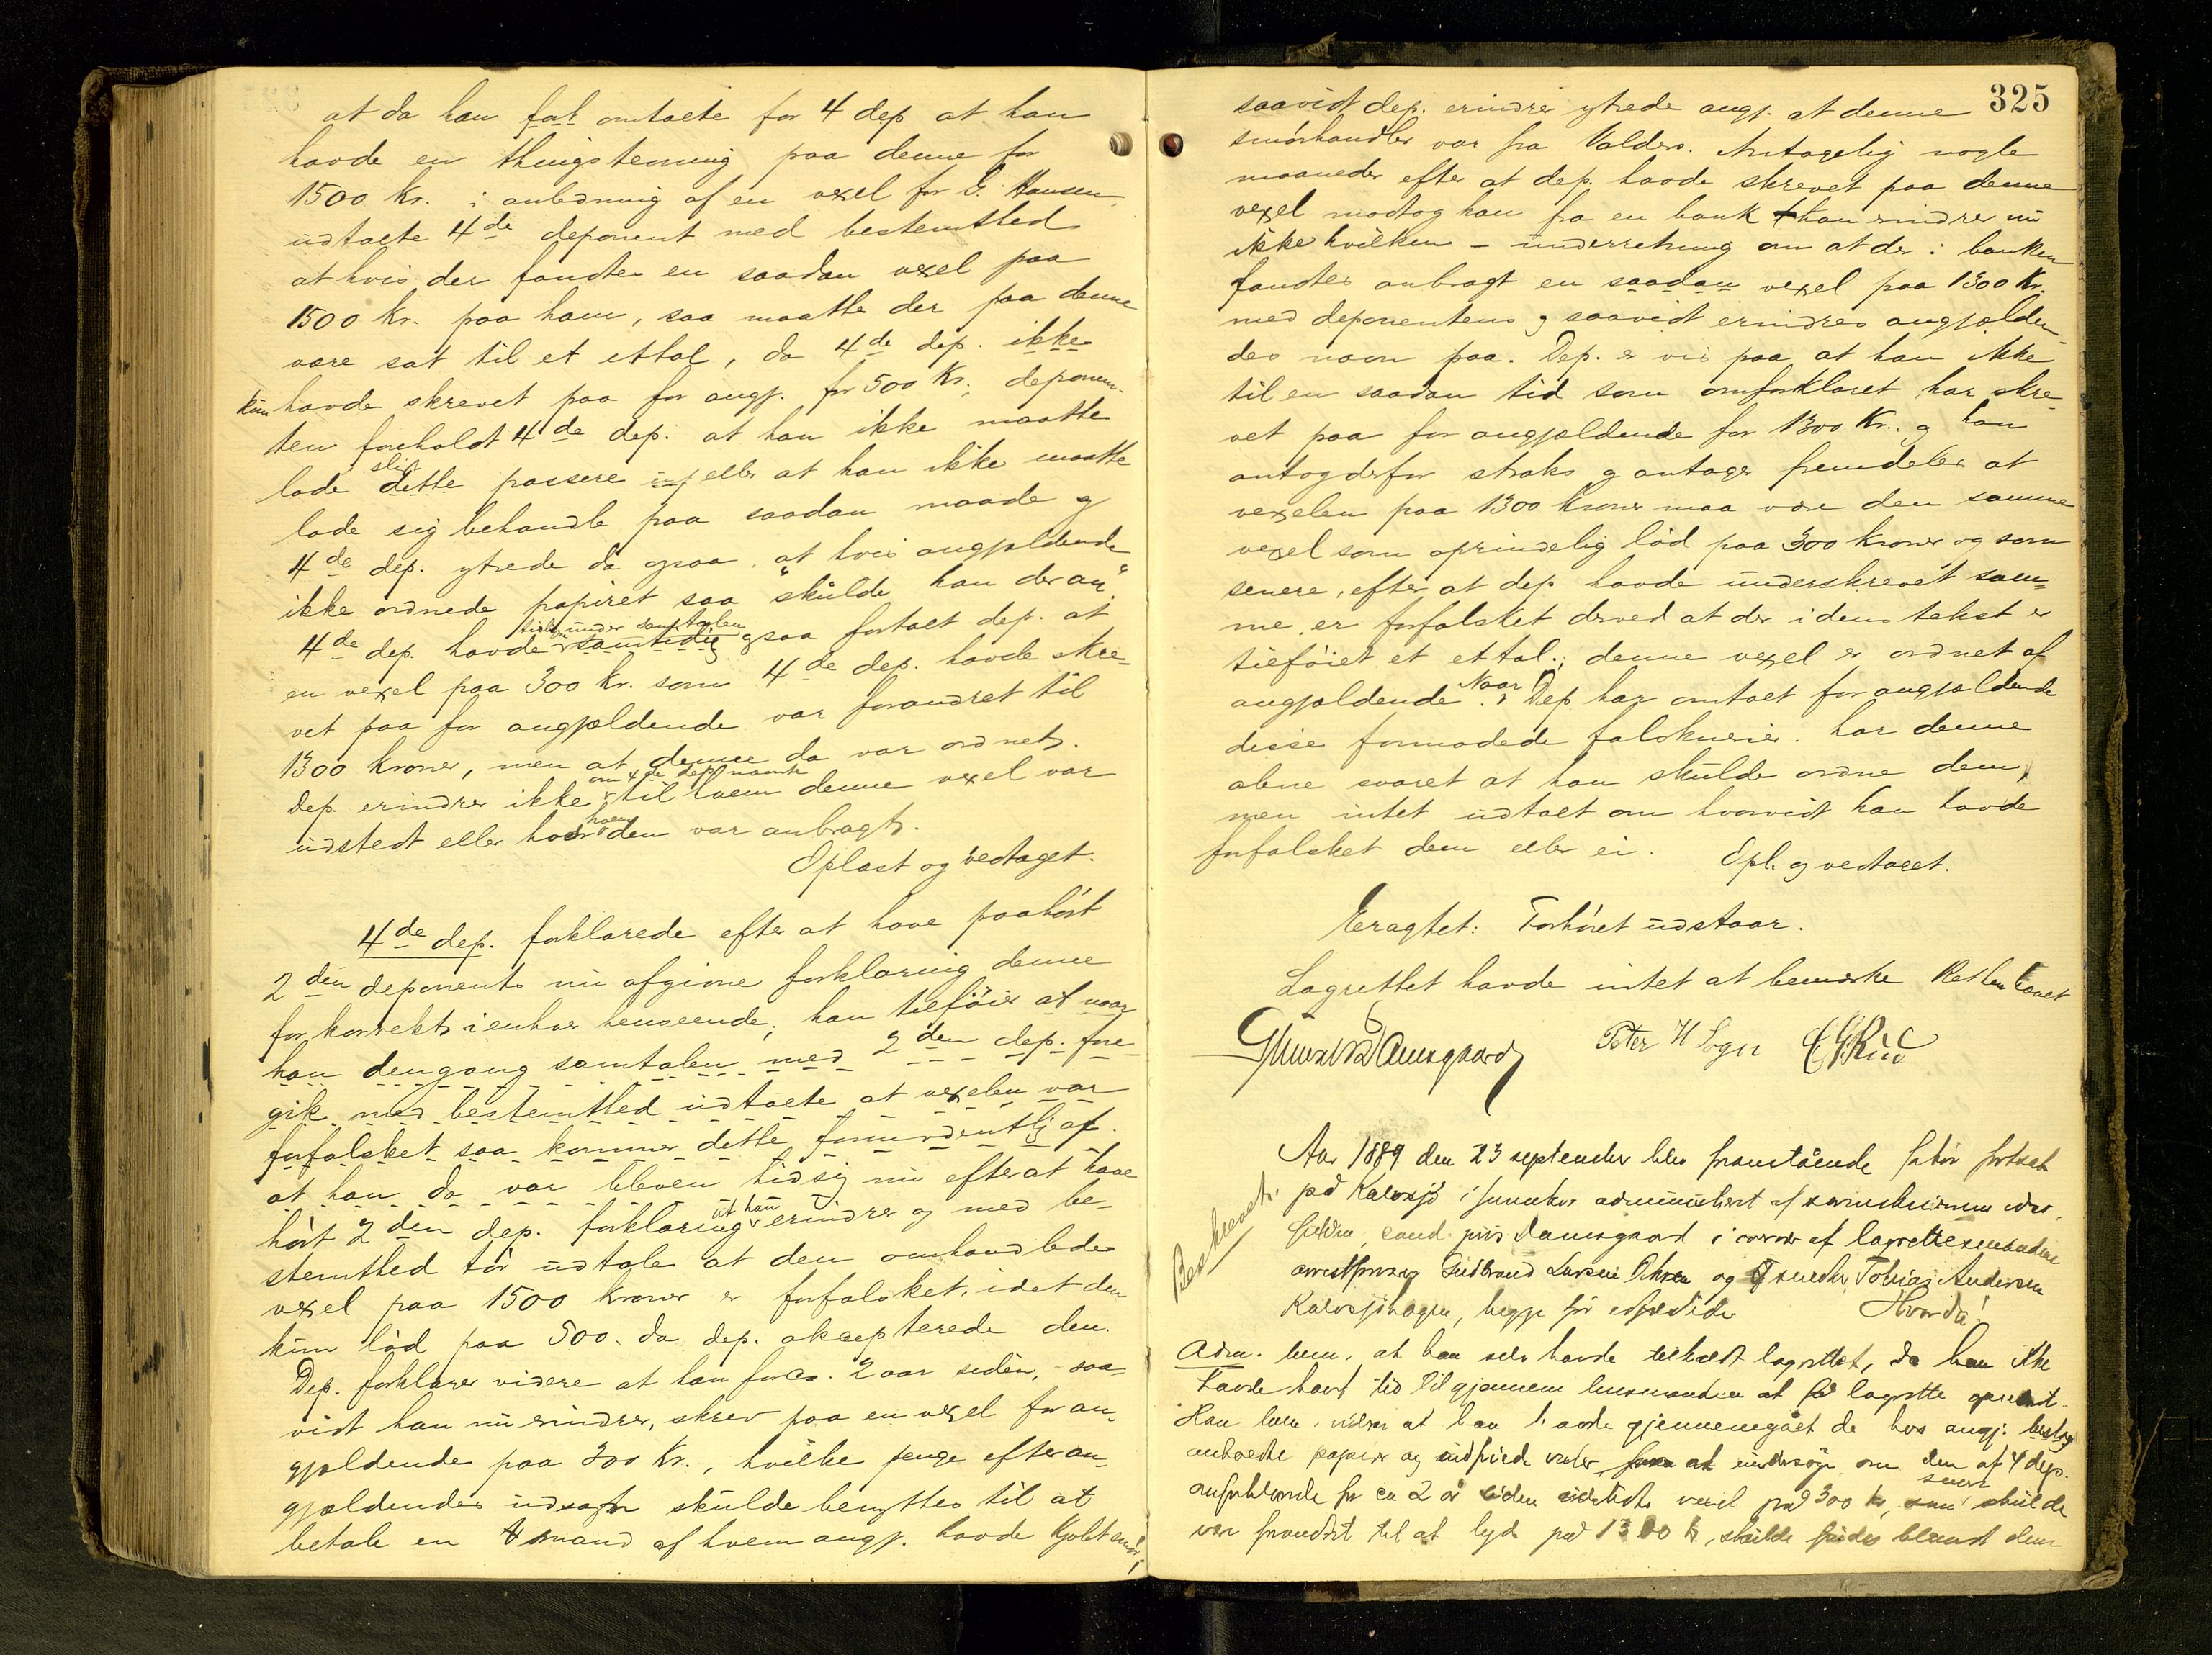 at da han omtalte for 4 dep at han
havde en thingstevning paa denne for
1500 kr. i anledning af en vexel for G. Hansen
udtalte 4de deponent med bestemthed
at hvis der fandtes en saadan vexel paa
1500 kr. paa ham, saa maatte der paa denne
være sat til et ettal, da 4de dep. ikke
kun havde skrevet paa for angj. for 500 Kr.; deponen-
ten foreholdt 4de dep. at han ikke maatte
lade slig dette passere eller at han ikke maatte
lade sig behandle paa saadan maade og
4de dep. ytrede da ogsaa, at hvis angjældende
ikke ordnede papiret saa "skulde han der an".
4de dep. havde under samtalen samtidig ogsaa fortalt dep. at
en vexel paa 300 kr. som 4de dep. havde skre-
vet paa for angjældende var forandret til
1300 kroner, men at denne da var ordnet.
Dep. erindrer ikke om 4de dep nævnte til hvem denne vexel var
udstedt eller hvor hvem den var anbragt.
Oplæst og vedtaget.
4de dep. forklarede efter at have paahørt
2den deponents nu afgivne forklaring denne
for korrekt i enhver henseende; han tilføier at naar
han dengang samtalen med 2den dep. fore-
gik med bestemthed udtalte at vexelen var
forfalsket saa kommer dette formodentlig af
at han da var bleven sig nu efter at have
hørt 2den dep. forklaring at han erindrer og med be-
stemthed tør udtale at den omhandlede
vexel paa 1500 kroner er forfalsket, idet den
kun lød paa 500. da dep. akcepterede den.
Dep. forklarer videre at han for ca. 2 aar siden, saa-
vidt han nu erindrer, skrev paa en vexel for an-
gjældende paa 300 kr., hvilke penge efter an-
gjældendes udsagn skulde benyttes til at
betale en mand af hvem angj. havde kjøbt smør;
325
saavidt dep. erindrer ytrede angj. at denne
smørhandler var fra Valders. Antagelig nogle
maaneder efter at dep. havde skrevet paa denne
vexel modtog han fra en bank - han erindrer nu
ikke hvilken - underretning om at der i banken
fandtes anbragt en saadan vexel paa 1300 Kr.
med deponentens og saavidt erindres angjælden-
des navn paa. Dep. er vis paa at han ikke
til en saadan tid som omforklaret har skre-
vet paa for angjældende for 1300 Kr. og han
antog derfor straks og antager fremdeles at
vexelen paa 1300 kroner maa være den samme
vexel som oprindelig lød paa 300 kroner og som
senere, efter at dep. havde underskrevet sam-
me er forfalsket derved at der i dens tekst er
tilføiet et ettal; denne vexel er ordnet af
angjældende. Naar Dep. har omtalt for angjældende
disse formodede falsknerier. har denne
alene svaret at han skulde ordne dem,
men intet udtalt om hvorvidt han havde
forfalsket dem eller ei.
Opl. og vedtaget.
Eragtet: Forhøret udstaar.
Lagrettet havde intet at bemærke Retten hævet
Damsgaard Peter H Sogn
Aar 1889 den 23 september blev foranstående forhør fortsat
på Kalvsjø i Jevnaker administreret af sorenskriverens edsv.
fuldm. cand. juris Damsgaard i nærvær af lagrettesmændene
Gudbrand Larsen og Tobias Andersen
Kalvsjøhagen, begge før edfæstede
Hvorda!
Beskrevet.
Adm. bem. at han selv havde tilkaldt lagrettet, da han ikke
havde havt tid til gjennem lensmanden at få lagrette opnævnt.
Han bem. videre at han havde gjennemgået de hos angj. beslag
anholdte papirer og indfriede vexler for at undersøge om den af 4 dep.
omforklarede for ca 2 år siden udstedte vexel på 300 kr, som senere skulde
være forandret til at lyde på 1300 kr, skulde findes blandt dem